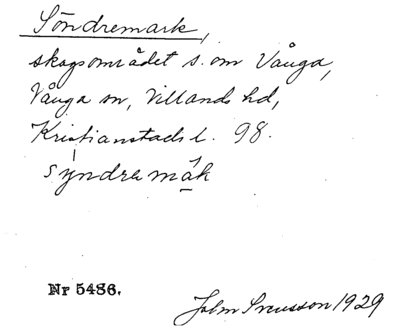 Söndremark,
skogsområdet s. om Vånga,
Vånga sn, Villands hd,
Kristianstads l. 98.
syndremåk
Nr 5486.
John Svensson 1929